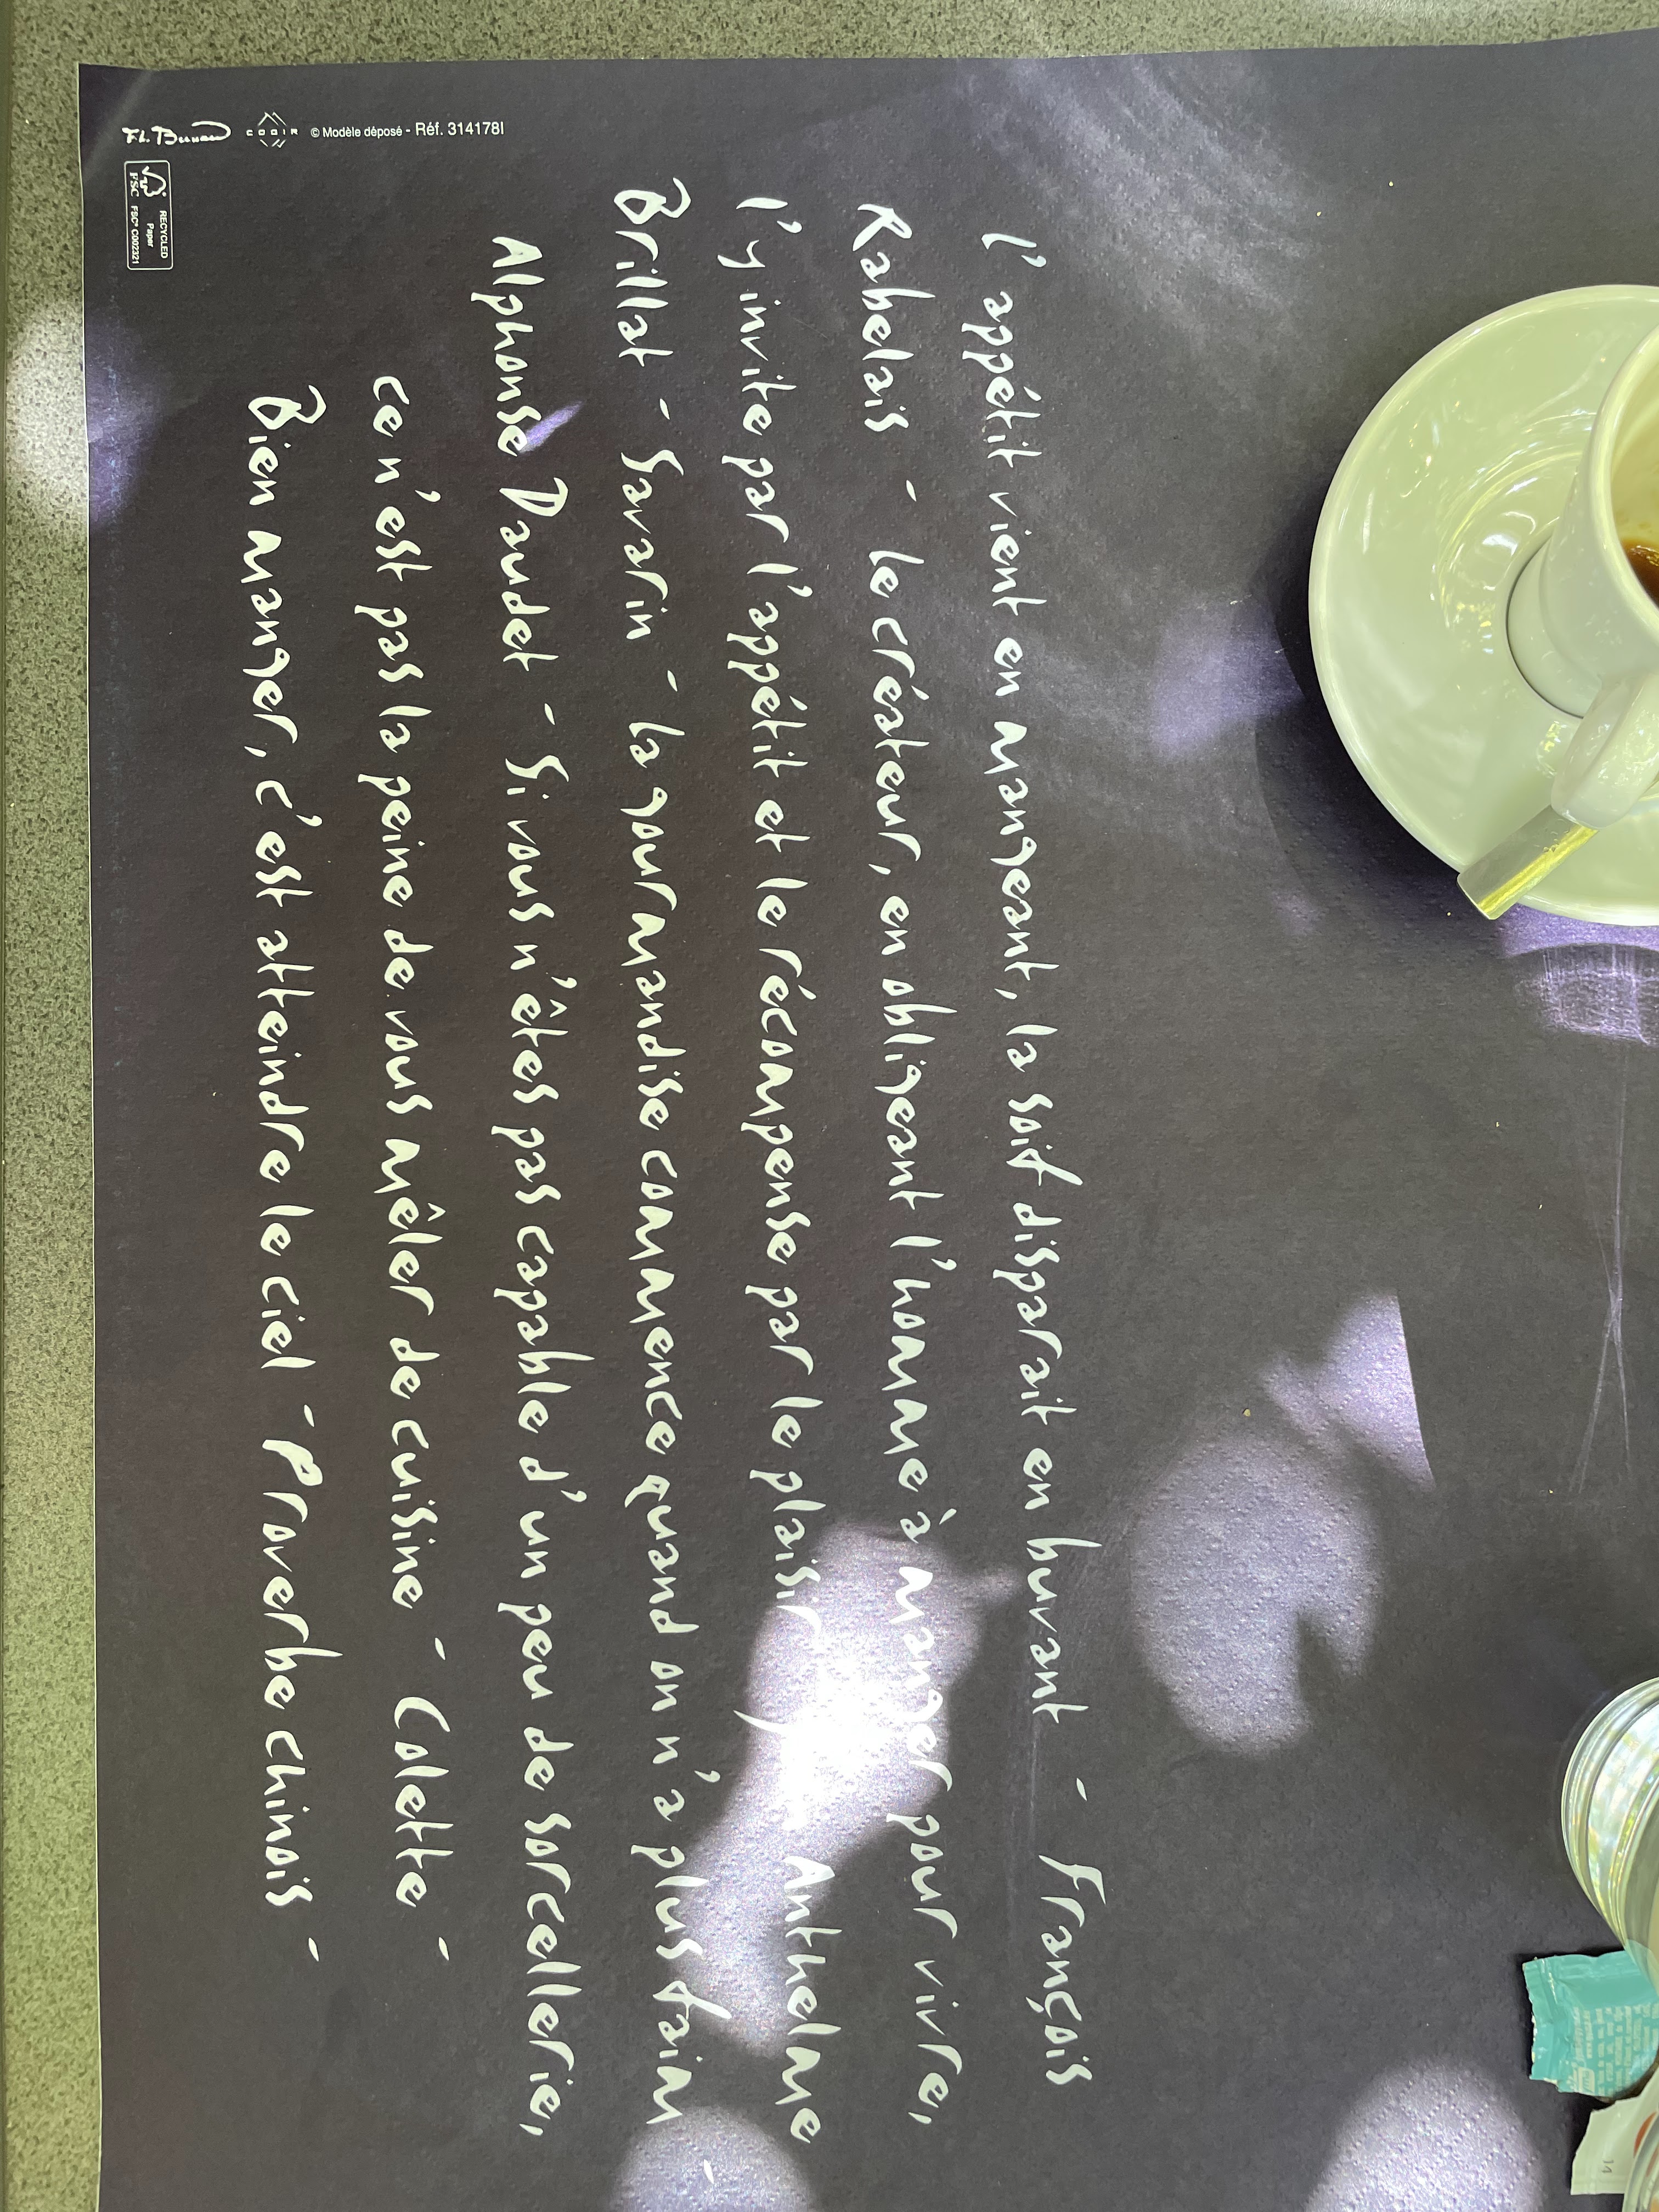 L'appétit vient en mangeant, la soif disparait en buvant - François
Rabelais - Le créateur, en obligeant l'homme à manger pour vivre,
l'y invite par l'appétit et le récompense par le plaisir - Anthelme
Brillat - Savarin - La gourmandise commence quand on n'a plus faim -
Alphonse Daudet - Si vous n'êtes pas capable d'un peu de sorcellerie,
ce n'est pas la peine de vous mêler de cuisine - Colette -
Bien manger, c'est atteindre le ciel - Proverbe chinois -
COGIR © Modèle déposé - Réf. 314178I
FSC
RECYCLED
Paper
FSC® C002321